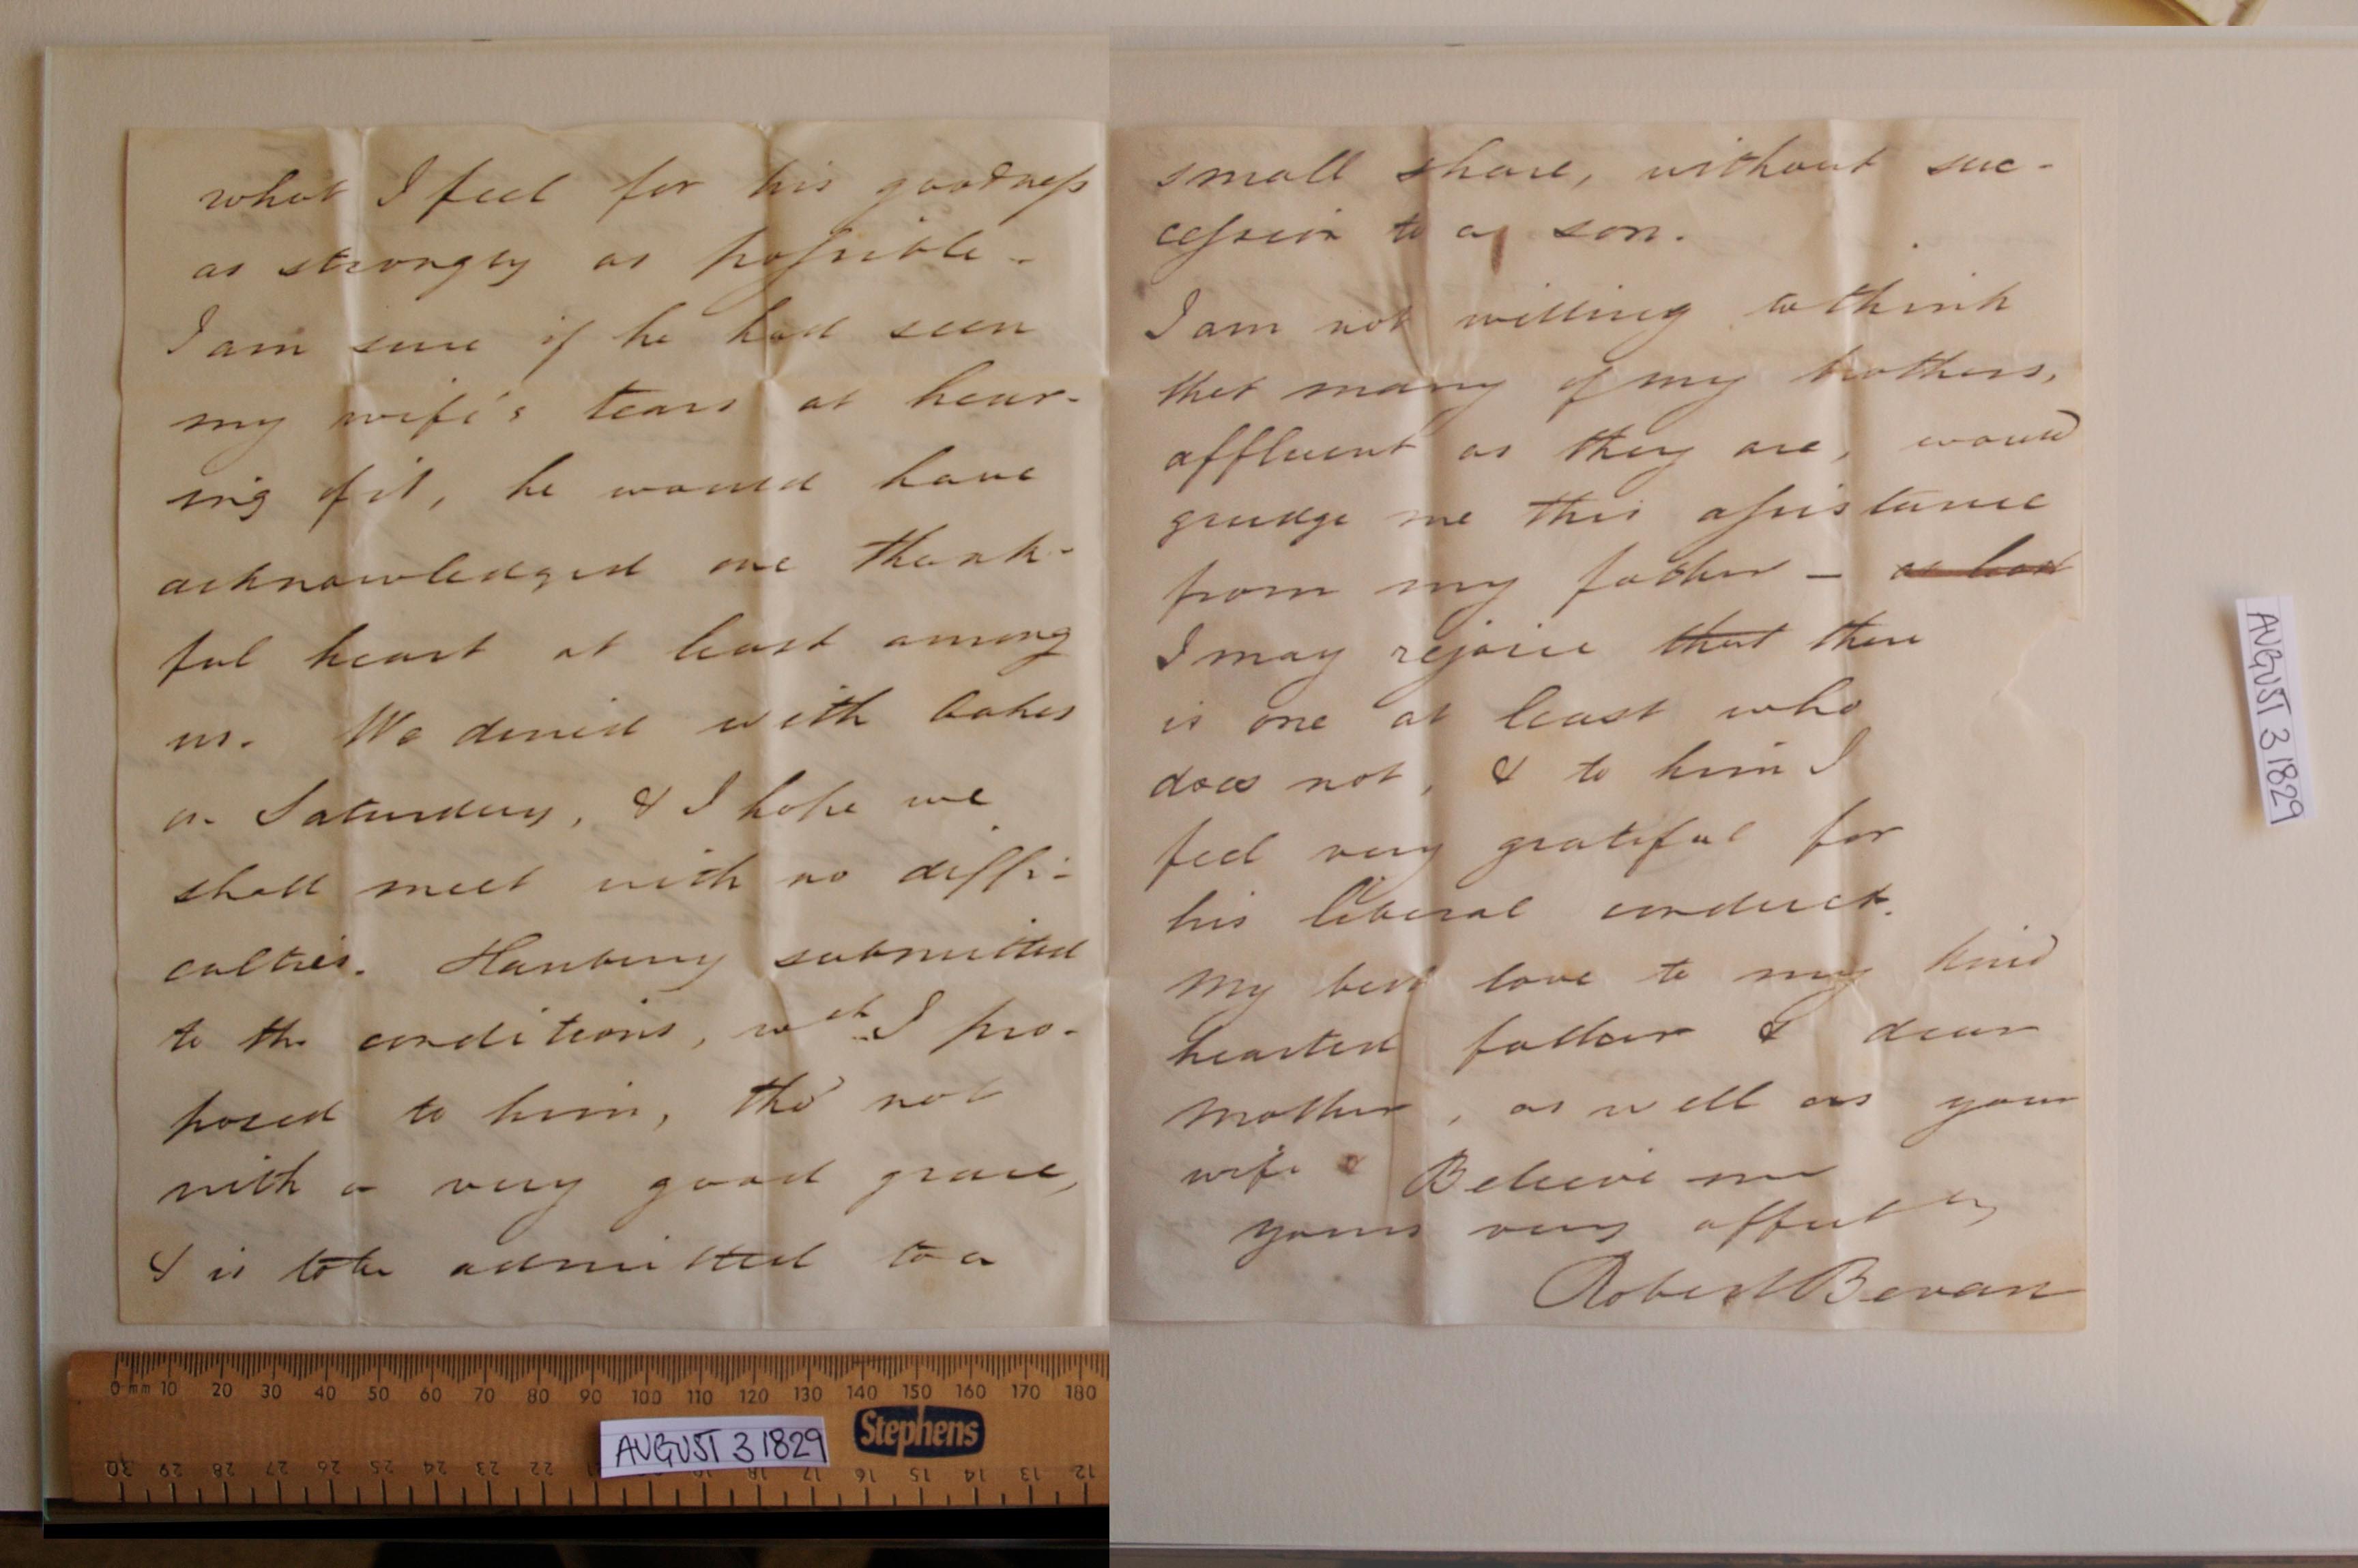 what I feel for his goodness
as strongly as possible -
I am sure if he had seen
my wife's tears at hear-
ing of it, he would have
acknowledged one thank-
ful heart at least among
us. We dined with Oakes
on Saturday, & I hope we
shall meet with no diffi-
culties. Hanbury submitted
to the conditions, wch I pro-
posed to him, tho' not
with a very good grace,
& is to be admitted to a
small share, without suc-
cession to a son.
I am not willing to think
that many of my brothers,
affluent as they are, would
grudge me this assistance
from my father -
I may rejoice that there
is one at least who
does not, & to him I
feel very grateful for
his liberal conduct.
My best love to my kind
hearted father & dear
mother, as well as your
wife & Believe me
yours very affectly
Robert Bevan
0 mm 10 20 30 40 50 60 70 80 90 100 110 120 130 140 150 160 170 180
AUGUST 3 1829
Stephens
30 29 28 27 26 25 24 23 22 21 19 18 17 16 15 14 13 12
AUGUST 3 1829